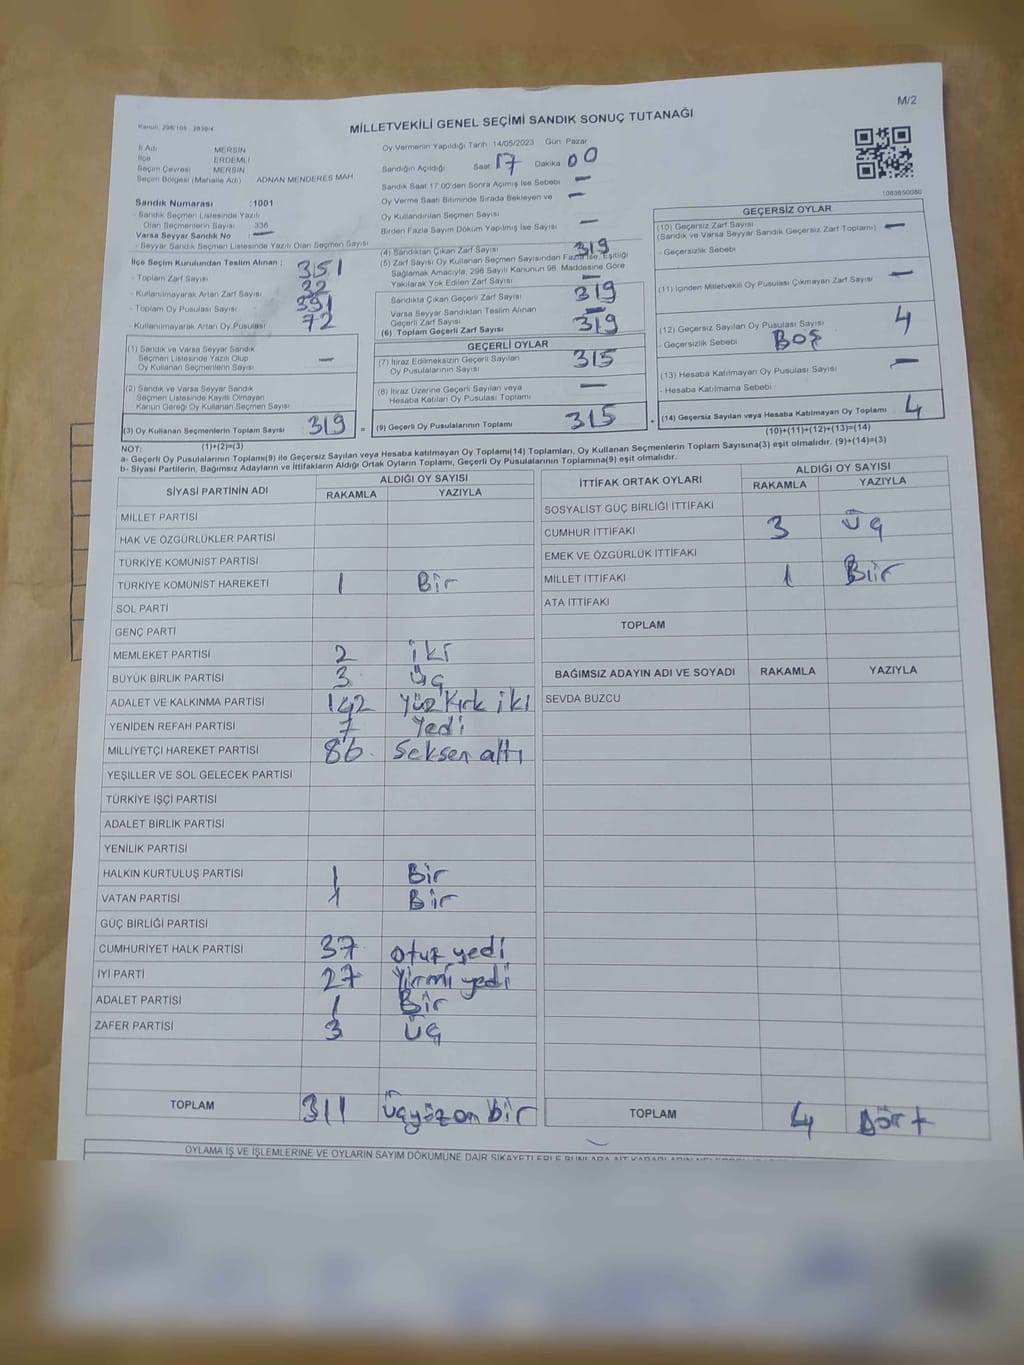 M/2
Kanun: 298/105 - 2839/4
MİLLETVEKİLİ GENEL SEÇİMİ SANDIK SONUÇ TUTANAĞI
İl Adı MERSİN
İlçe ERDEMLİ
Seçim Çevresi MERSİN
Seçim Bölgesi (Mahalle Adı) ADNAN MENDERES MAH
Sandık Numarası :1001
- Sandık Seçmen Listesinde Yazılı
Olan Seçmenlerin Sayısı 336
Varsa Seyyar Sandık No : —
- Seyyar Sandık Seçmen Listesinde Yazılı Olan Seçmen Sayısı
Oy Vermenin Yapıldığı Tarih 14/05/2023 Gün: Pazar
Sandığın Açıldığı Saat 17 Dakika 00
Sandık Saat 17.00'den Sonra Açımış İse Sebebi —
Oy Verme Saati Bitiminde Sırada Bekleyen ve —
Oy Kullandırılan Seçmen Sayısı
Birden Fazla Sayım Döküm Yapılmış İse Sayısı —
1083650050
İlçe Seçim Kurulundan Teslim Alınan ;
- Toplam Zarf Sayısı 351
- Kullanılmayarak Artan Zarf Sayısı 32
- Toplam Oy Pusulası Sayısı 391
- Kullanılmayarak Artan Oy Pusulası 72
(1) Sandık ve Varsa Seyyar Sandık
Seçmen Listesinde Yazılı Olup
Oy Kullanan Seçmenlerin Sayısı —
(2) Sandık ve Varsa Seyyar Sandık
Seçmen Listesinde Kayıtlı Olmayan
Kanun Gereği Oy Kullanan Seçmen Sayısı
(3) Oy Kullanan Seçmenlerin Toplam Sayısı 319 =
(1)+(2)=(3)
(4) Sandıktan Çıkan Zarf Sayısı 319
(5) Zarf Sayısı Oy Kullanan Seçmen Sayısından Fazla İse, Eşitliği
Sağlamak Amacıyla, 298 Sayılı Kanunun 98. Maddesine Göre
Yakılarak Yok Edilen Zarf Sayısı —
Sandıkta Çıkan Geçerli Zarf Sayısı 319
Varsa Seyyar Sandıktan Teslim Alınan
Geçerli Zarf Sayısı —
(6) Toplam Geçerli Zarf Sayısı 319
GEÇERLİ OYLAR
(7) İtiraz Edilmeksizin Geçerli Sayılan
Oy Pusulalarının Sayısı 315
(8) İtiraz Üzerine Geçerli Sayılan veya
Hesaba Katılan Oy Pusulası Toplamı —
(9) Geçerli Oy Pusulalarının Toplamı 315
GEÇERSİZ OYLAR
(10) Geçersiz Zarf Sayısı
(Sandık ve Varsa Seyyar Sandık Geçersiz Zarf Toplamı) —
- Geçersizlik Sebebi
(11) İçinden Milletvekili Oy Pusulası Çıkmayan Zarf Sayısı —
(12) Geçersiz Sayılan Oy Pusulası Sayısı 4
- Geçersizlik Sebebi BOŞ
(13) Hesaba Katılmayan Oy Pusulası Sayısı —
- Hesaba Katılmama Sebebi
(14) Geçersiz Sayılan veya Hesaba Katılmayan Oy Toplamı 4
(10)+(11)+(12)+(13)=(14)
NOT:
a- Geçerli Oy Pusulalarının Toplamı(9) ile Geçersiz Sayılan veya Hesaba katılmayan Oy Toplamı(14) Toplamları, Oy Kullanan Seçmenlerin Toplam Sayısına(3) eşit olmalıdır. (9)+(14)=(3)
b- Siyasi Partilerin, Bağımsız Adayların ve İttifakların Aldığı Ortak Oyların Toplamı, Geçerli Oy Pusulalarının Toplamına(9) eşit olmalıdır.
SİYASİ PARTİNİN ADI ALDIĞI OY SAYISI
RAKAMLA YAZIYLA
MİLLET PARTİSİ
HAK VE ÖZGÜRLÜKLER PARTİSİ
TÜRKİYE KOMÜNİST PARTİSİ
TÜRKİYE KOMÜNİST HAREKETİ 1 Bir
SOL PARTİ
GENÇ PARTİ
MEMLEKET PARTİSİ 2 iki
BÜYÜK BİRLİK PARTİSİ 3 üç
ADALET VE KALKINMA PARTİSİ 142 yüz kırk iki
YENİDEN REFAH PARTİSİ 7 yedi
MİLLİYETÇİ HAREKET PARTİSİ 86 seksen altı
YEŞİLLER VE SOL GELECEK PARTİSİ
TÜRKİYE İŞÇİ PARTİSİ
ADALET BİRLİK PARTİSİ
YENİLİK PARTİSİ
HALKIN KURTULUŞ PARTİSİ 1 Bir
VATAN PARTİSİ 1 Bir
GÜÇ BİRLİĞİ PARTİSİ
CUMHURİYET HALK PARTİSİ 37 otuz yedi
İYİ PARTİ 27 Yirmi yedi
ADALET PARTİSİ 1 Bir
ZAFER PARTİSİ 3 üç
TOPLAM 311 üçyüzon bir
İTTİFAK ORTAK OYLARI ALDIĞI OY SAYISI
RAKAMLA YAZIYLA
SOSYALİST GÜÇ BİRLİĞİ İTTİFAKI
CUMHUR İTTİFAKI 3 üç
EMEK VE ÖZGÜRLÜK İTTİFAKI
MİLLET İTTİFAKI 1 Biir
ATA İTTİFAKI
TOPLAM
BAĞIMSIZ ADAYIN ADI VE SOYADI RAKAMLA YAZIYLA
SEVDA BUZCU
TOPLAM 4 Dört
OYLAMA İŞ VE İŞLEMLERİNE VE OYLARIN SAYIM DÖKÜMÜNE DAİR ŞİKAYETLERLE BUNLARA AİT